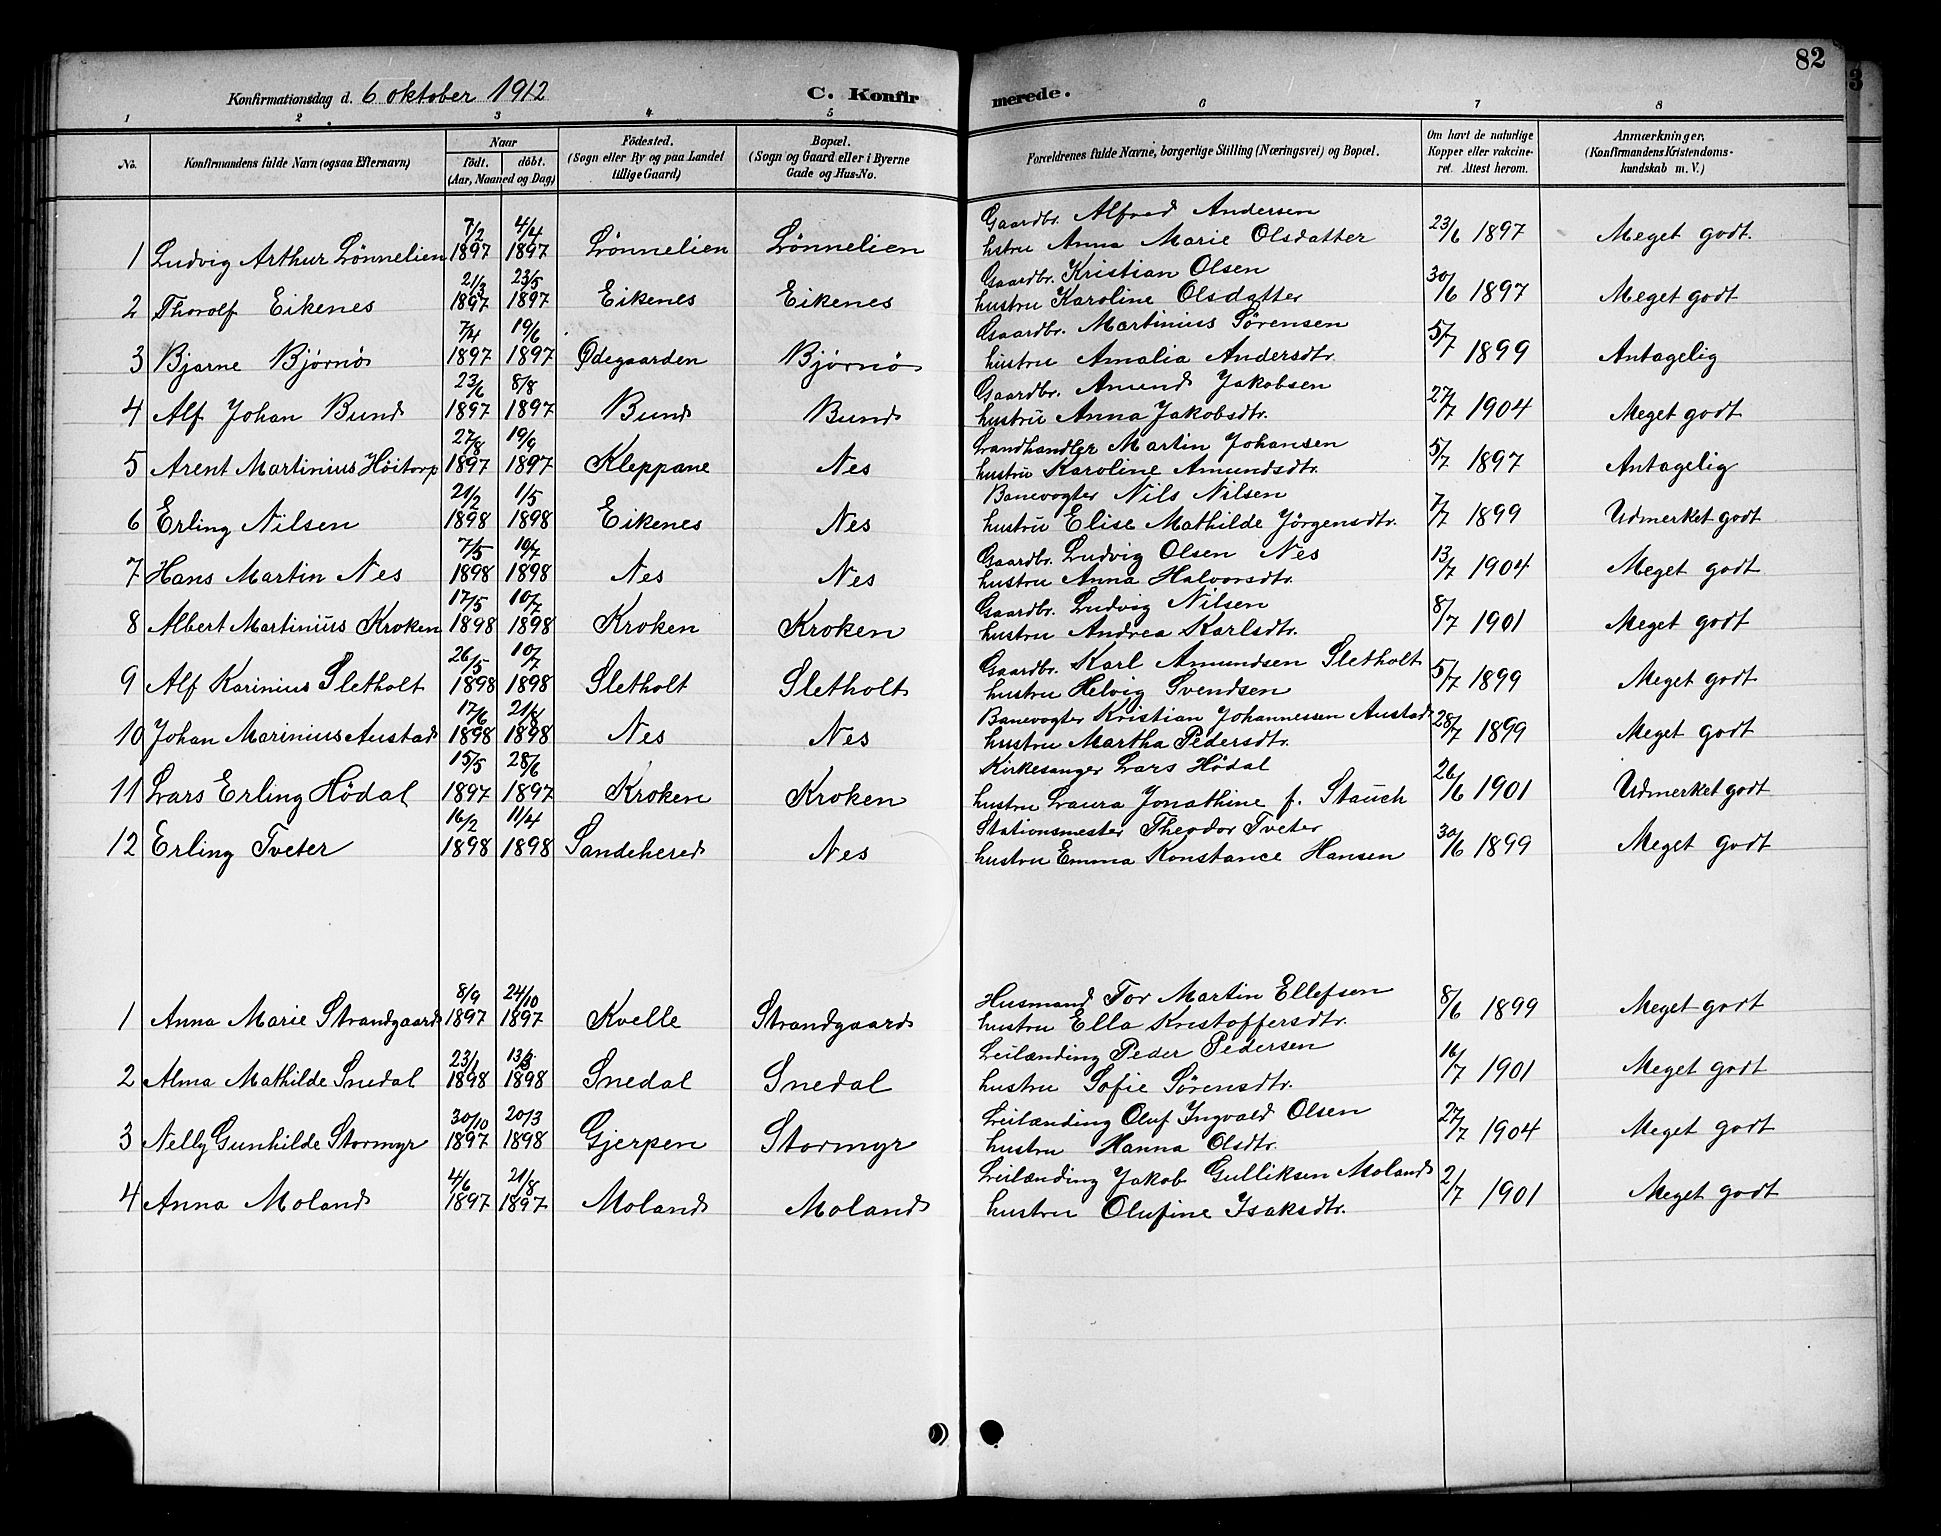 82
Konfirmationsdag d. 6 oktober 1912 C. Konfirmerede.
1 2 3 4 5 6 7 8
No. Konfirmandens fulde Navn (ogsaa Efternavn) Naar födt. döbt. (Aar, Maaned og Dag) Födested. (Sogn eller By og paa Landet tillige Gaard) Bopæl. (Sogn og Gaard eller i Byerne Gade og Hus-No. Forældrenes fulde Navne, borgerlige Stilling (Næringsvei) og Bopæl. Om havt de naturlige Kopper eller vakcineret. Attest herom. Anmærkninger. (Konfirmandens Kristendomskundskab m. V.)
1 Ludvig Arthur Lönnelien 7/2 1897 4/4 1897 Lönnelien Lönnelien Gaardbr. Alfred Andersen 23/6 1897 Meget godt.
hstru Anna Marie Olsdatter
2 Thorolf Eikenes 21/3 1897 23/5 1897 Eikenes Eikenes Gaardbr. Kristian Olsen 30/6 1897 Meget godt
hustru Karoline Olsdatter
3 Bjarne Bjørnö 7/4 1897 19/6 1897 Ødegaarden Bjørnö Gaardbr. Martinius Sörensen 5/7 1899 Antagelig
hustru Amalia Andersdtr.
4 Alf Johan Bund 23/6 1897 8/8 1897 Bund Bund Gaardbr. Amund Jakobsen 27/7 1904 Meget godt
hustru Anna Jakobsdtr.
5 Arent Martinius Höitorp 27/8 1897 19/9 1897 Kleppane Nes Landhandler Martin Johansen 5/7 1897 Antagelig
hustru Karoline Amundsdtr.
6 Erling Nilsen 21/2 1898 1/5 1898 Eikenes Nes Banevogter Nils Nilsen 7/7 1899 Udmerket godt
hustru Elise Mathilde Jörgensdtr.
7 Hans Martin Nes 7/5 1898 10/7 1898 Nes Nes Gaardbr. Ludvig Olsen Nes 13/7 1904 Meget godt
hustru Anna Halvorsdtr.
8 Albert Martinius Kroken 17/5 1898 10/7 1898 Kroken Kroken Gaardbr. Ludvig Nilsen 8/7 1901 Meget godt
hustru Andrea Karlsdtr.
9 Alf Karinius Sletholt 26/5 1898 10/7 1898 Sletholt Sletholt Gaardbr. Karl Amundsen Sletholt 5/7 1899 Meget godt
hustru Helvig Svendsen
10 Johan Marinius Austad 17/6 1898 21/8 1898 Nes Nes Banevogter Kristian Johannessen Austad 28/7 1899 Meget godt
hustru Martha Pedersdtr.
11 Lars Erling Hödal 15/5 1897 28/6 1897 Kroken Kroken Kirkesanger Lars Hödal 26/6 1901 Udmerket godt
hustru Laura Jonathine f. Stauch
12 Erling Tveter 16/2 1898 11/4 1898 Sandehered Nes Stationsmester Theodor Tveter 30/6 1899 Meget godt
hustru Emma Konstance Hansen
1 Anna Marie Strandgaard 8/9 1897 24/10 1897 Kvelle Strandgaard Husmand Tor Martin Ellefsen 8/6 1899 Meget godt
hustru Ella Kristoffersdtr.
2 Alma Mathilde Snedal 23/1 1898 13/3 1898 Snedal Snedal Leilænding Peder Pedersen 16/7 1901 Meget godt
hustru Sofie Sörensdtr.
3 Nelly Gunhilde Stormyr 30/10 1897 20/3 1898 Gjerpen Stormyr Leilænding Oluf Ingvald Olsen 27/7 1904 Meget godt
hustru Hanna Olsdtr.
4 Anna Moland 4/6 1897 21/8 1897 Moland Moland Leilænding Jakob Gulliksen Moland 2/7 1901 Meget godt
hustru Olufine Isaksdtr.